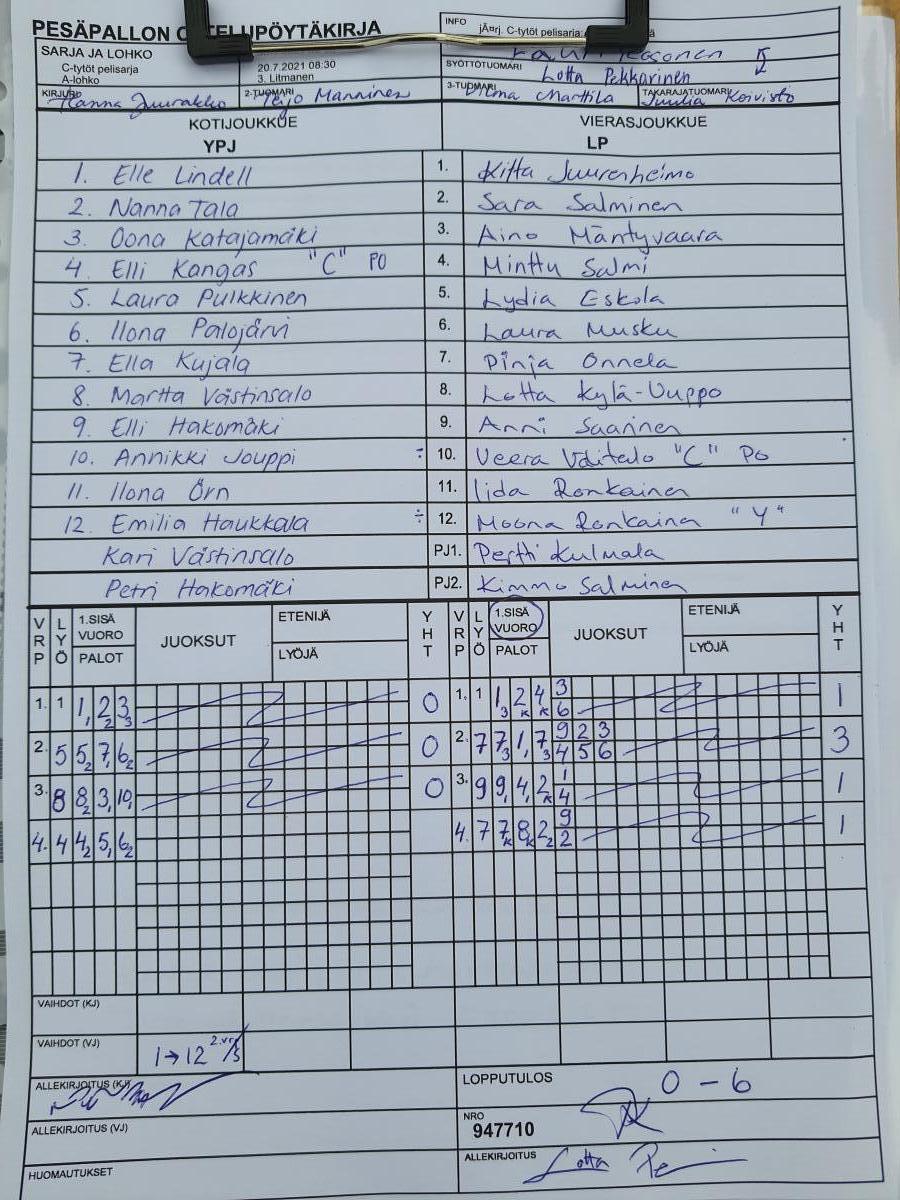 PESÄPALLON OTTELUPÖYTÄKIRJA
INFO
jÃ¤rj. C-tytöt pelisarja:
SARJA JA LOHKO
C-tytöt pelisarja
A-lohko
20.7.2021 08:30
3. Litmanen
SYÖTTÖTUOMARI
Lotta Pekkarinen
KIRJURI Hanna Juurakko
2-TUOMARI Teijo Manninen
3-TUOMARI Vilma Marttila
TAKARAJATUOMARI Juulia Koivisto
KOTIJOUKKUE
VIERASJOUKKUE
YPJ
LP
1. Elle Lindell 1. Kitta Juurenheimo
2. Nanna Tala 2. Sara Salminen
3. Oona Katajamäki 3. Aino Mäntyvaara
4. Elli Kangas "C" PO 4. Minttu Salmi
5. Laura Pulkkinen 5. Lydia Eskola
6. Ilona Palojärvi 6. Laura Musku
7. Ella Kujala 7. Pinja Onnela
8. Martta Västinsalo 8. Lotta Kylä-Uuppo
9. Elli Hakomäki 9. Anni Saarinen
10. Annikki Jouppi ÷ 10. Veera Välitalo "C" PO
11. Ilona Örn 11. Iida Ronkainen
12. Emilia Haukkala ÷ 12. Moona Ronkainen "Y"
Kari Västinsalo PJ1. Pertti Kulmala
Petri Hakomäki PJ2. Kimmo Salminen
VRP LYÖ 1.SISÄ VUORO PALOT JUOKSUT ETENIJÄ LYÖJÄ YHT VRP LYÖ 1.SISÄ VUORO PALOT JUOKSUT ETENIJÄ LYÖJÄ YHT
1. 1 1, 2 2 3 3 0 1. 1 1 3 2 K 4 K 3 6 1
2. 5 5 2 7, 6 2 0 2. 7 7 3 1, 7 3 9 2 3 4 5 6 3
3. 8 8 2 3, 10, 0 3. 9 9, 4, 2 K 1 4 1
4. 4 4 2 5, 6 2 4. 7 7 K 8 K 2 2 9 2 1
VAIHDOT (KJ)
VAIHDOT (VJ)
1→12 2.vr/s
ALLEKIRJOITUS (KJ)
LOPPUTULOS 0 - 6
ALLEKIRJOITUS (VJ)
NRO
947710
HUOMAUTUKSET
ALLEKIRJOITUS Lotta